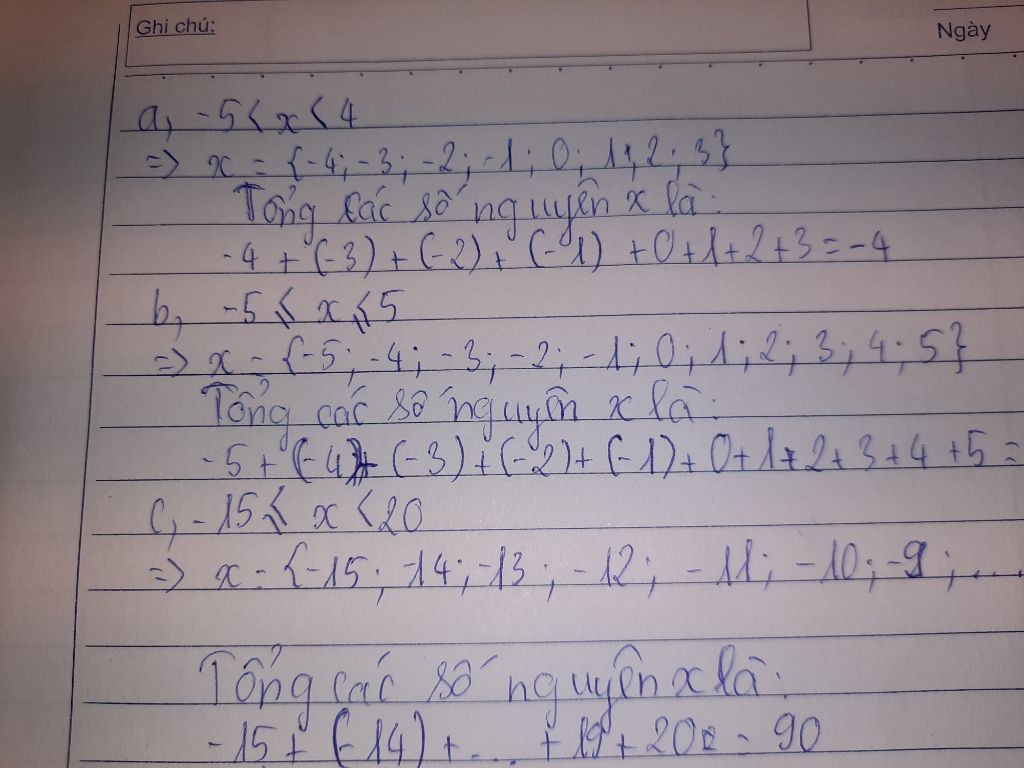 Ghi chú:
Ngày
a, -5 < x < 4
=> x = {-4; -3; -2; -1; 0; 1; 2; 3}
Tổng các số nguyên x là:
-4 + (-3) + (-2) + (-1) + 0 + 1 + 2 + 3 = -4
b, -5 ≤ x ≤ 5
=> x = {-5; -4; -3; -2; -1; 0; 1; 2; 3; 4; 5}
Tổng các số nguyên x là:
-5 + (-4) + (-3) + (-2) + (-1) + 0 + 1 + 2 + 3 + 4 + 5 =
c, -15 ≤ x < 20
=> x = {-15; -14; -13; -12; -11; -10; -9; ...
Tổng các số nguyên x là:
-15 + (-14) + ... + 19 + 20 = 90